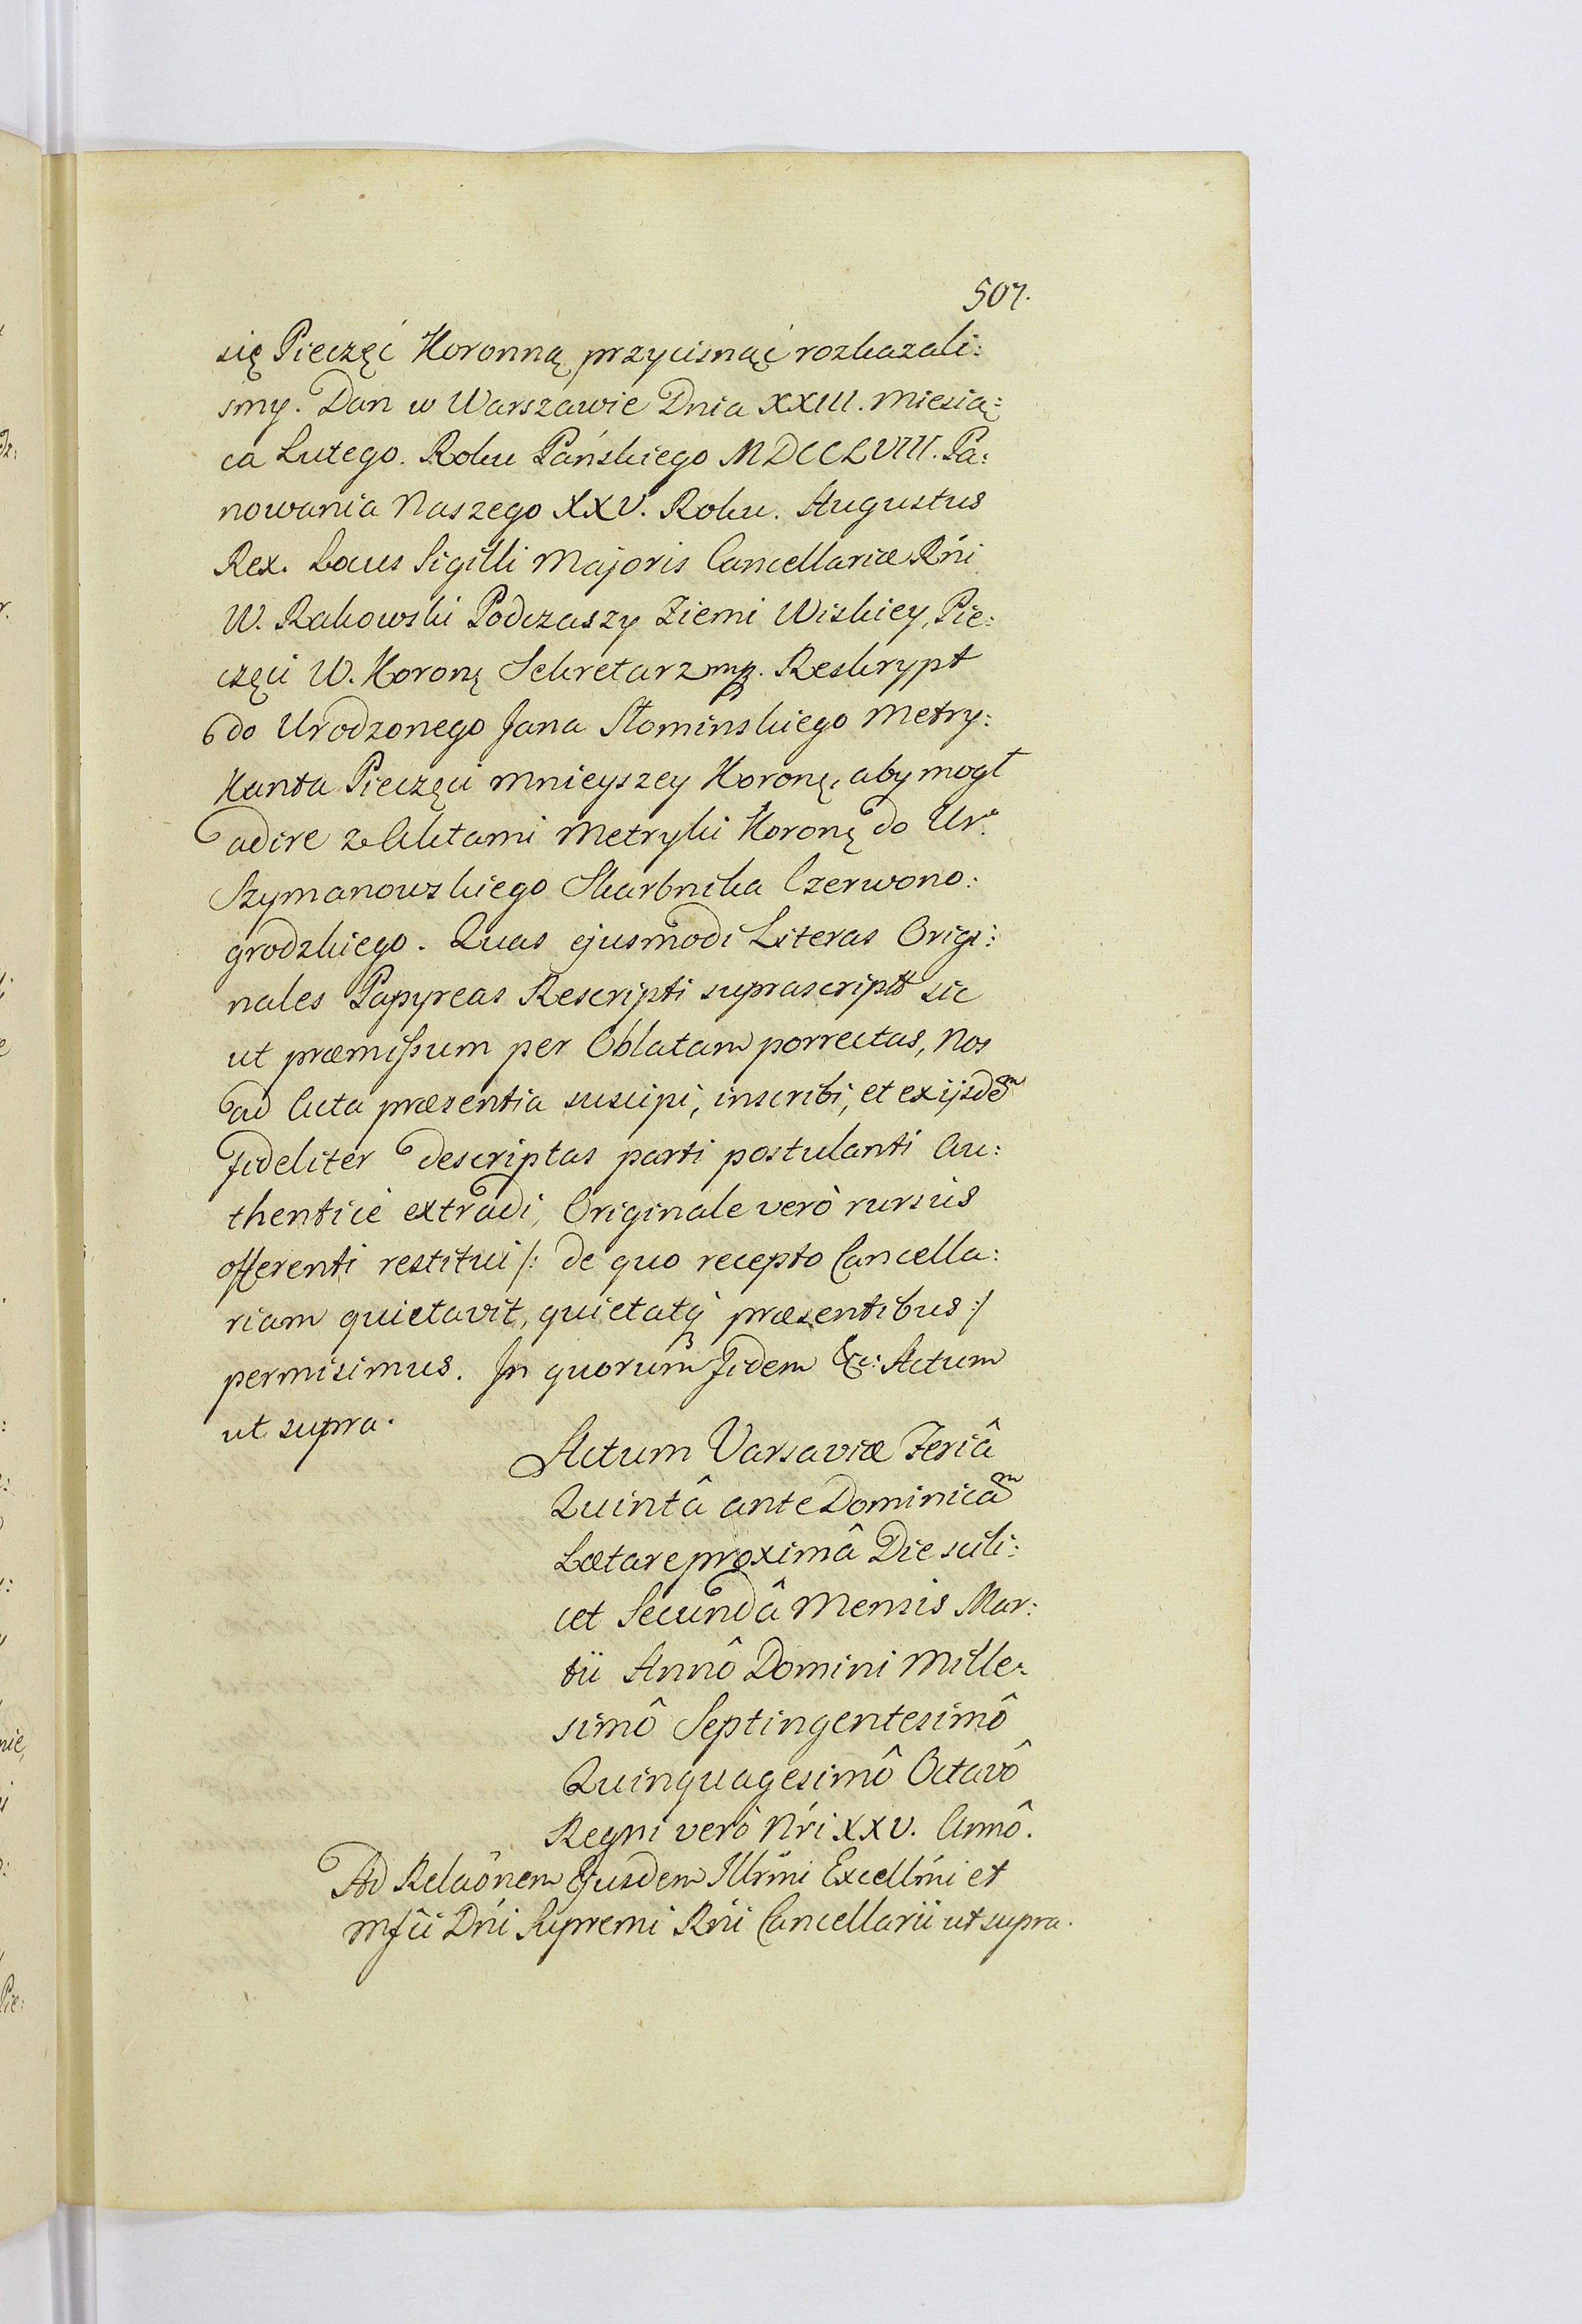 507.
się Pieczęć Koronną przycisnąć rozkazali:
smy. Dan w Warszawie Dnia XXIII. Miesią:
ca Lutego. Roku Pańskiego MDCCLVIII. Pa:
nowania Naszego XXV. Roku. Augustus
Rex. Locus Sigilli Majoris Cancellariæ Rńi
W. Rakowski Podczaszy Ziemi Wiskiey, Pie:
częci W. Koronę Sekretarz mp. Reskrypt
do Urodzonego Jana Słominskiego Metry:
kanta Pieczęci Mnieyszey Koronę, aby mogł
adire z Aktami Metryki Koronę do Ur.
Szymanowskiego Skarbnika Czerwono:
grodzkiego. Quas ejusmodi Literas Origi:
nales Papyreas Rescripti suprascripti sic
ut præmissum per Oblatam porrectas, Nos
ad Acta præsentia suscipi, inscribi, et ex ijsdem
fideliter descriptas parti postulanti Au:
thenticè extradi, Originale verò rursùs
offerenti restitui /: de quo recepto Cancella:
riam quietavit, quietatq præsentibus :/
permisimus. In quorum Fidem &c: Actum
ut supra.
Actum Varsaviæ Feriâ
Quintâ ante Dominicam
Lætare proximâ Die scili:
cet Secundâ Mensis Mar:
tii Annô Domini Mille:
simô Septingentesimô
Quinquagesimô Octavô
Regni verò Nŕi XXV. Annô.
Ad Relaõnem Ejusdem Illrm̃i Excellm̃i et
Mfci Dńi Supremi Rńi Cancellarii ut supra.